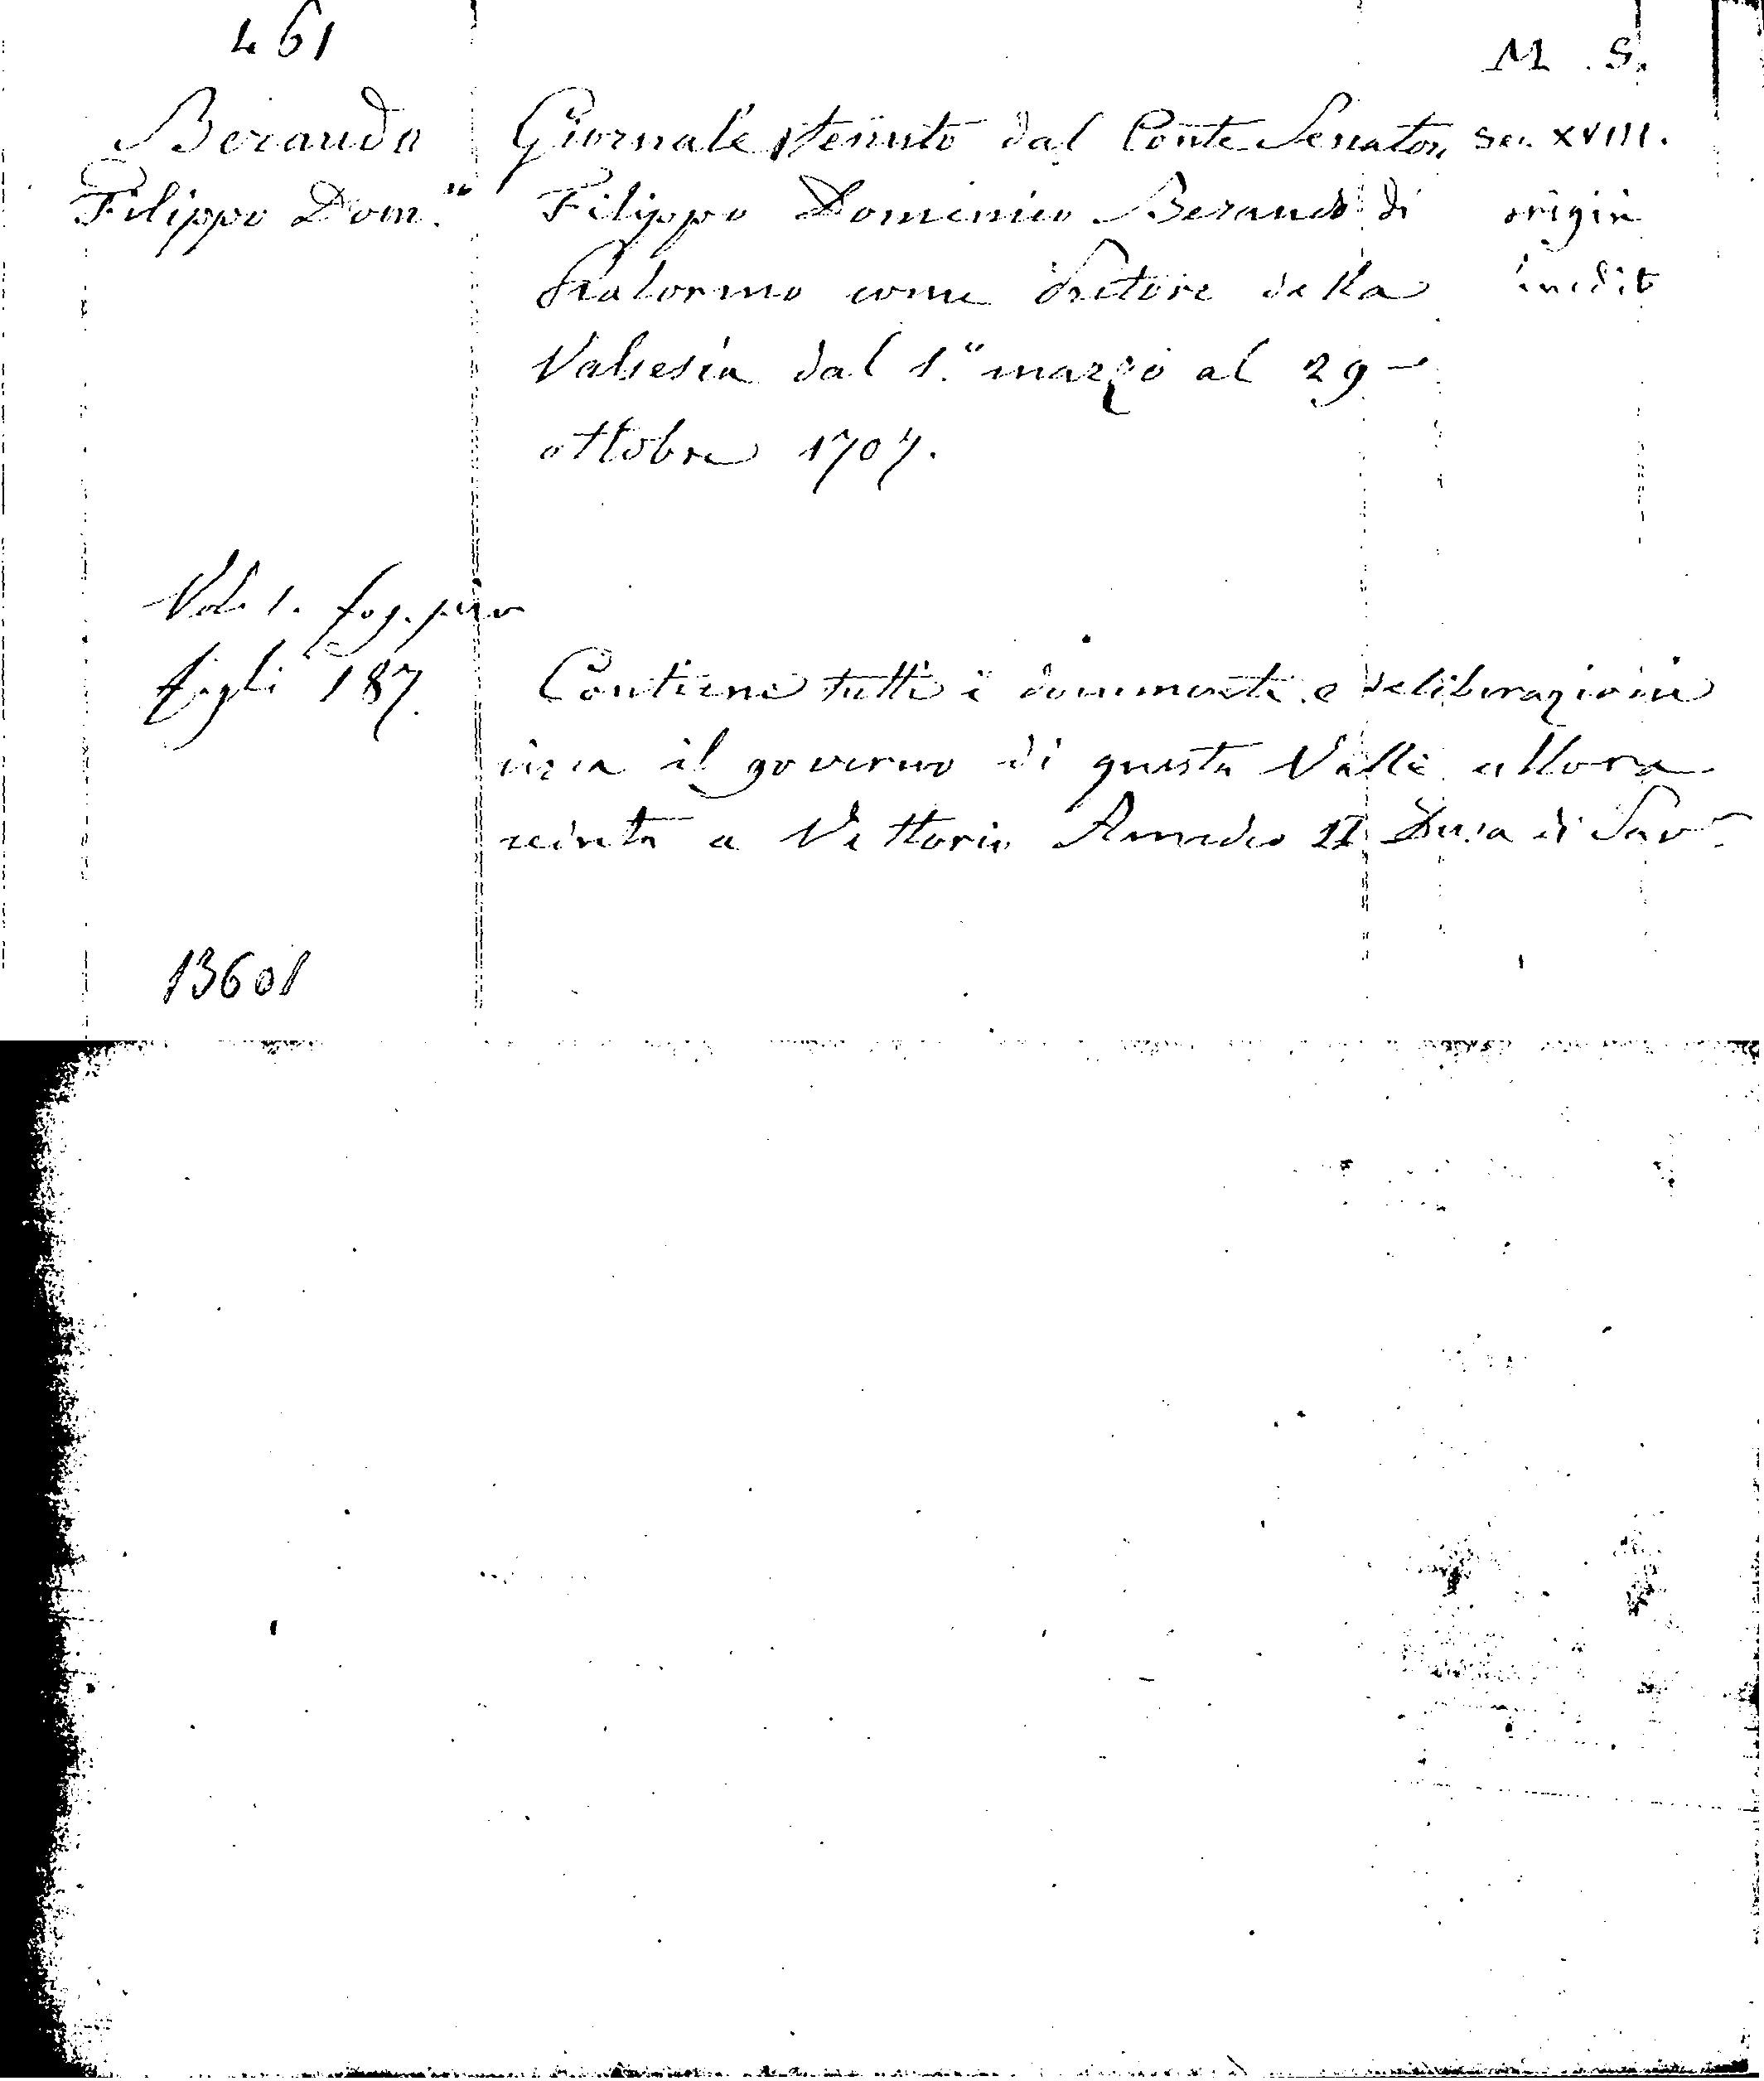 461
M. S.
Beraudo
Filippo Dom.co
Giornale tenuto dal Conte Senatore
Filippo Domenico Beraudo di
Pralormo come Pretore della
Valsesia dal 1.o marzo al 29
ottobre 1707.
Sec. XVIII.
origin
inedit
Vol. 1. fog. picc
fogli 187.
Contiene tutti i documenti e deliberazioni
circa il governo di questa Valle allora
ceduta a Vittorio Amedeo II Duca di Sav.
13601